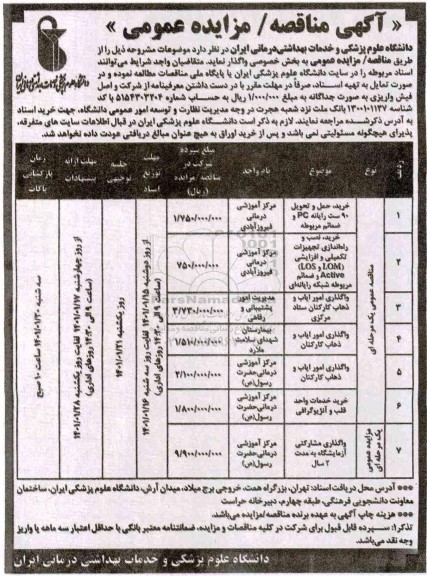 « آگهی مناقصه/ مزایده عمومی »
دانشگاه علوم پزشکی و خدمات بهداشتی درمانی ایران در نظر دارد موضوعات مشروحه ذیل را از
طریق مناقصه/ مزایده عمومی به بخش خصوصی واگذار نماید. متقاضیان واجد شرایط می‌توانند
اسناد مربوطه را در سایت دانشگاه علوم پزشکی ایران یا پایگاه ملی مناقصات مطالعه نموده و در
صورت تمایل به تهیه اسناد، صرفاً در مهلت مقرر با در دست داشتن معرفینامه از شرکت و اصل
فیش واریزی به صورت جداگانه به مبلغ ۱/۰۰۰/۰۰۰ ریال به حساب شماره ۵۱۵۴۳۰۳۲۰۴ کد
شناسه ۱۳۰۰۱۰۱۱۳۷ بانک ملت نزد شعبه هجرت در وجه مدیریت نظارت و توسعه امور عمومی دانشگاه، جهت خرید اسناد
به آدرس ذکر شده مراجعه نمایند. لازم به ذکر است دانشگاه علوم پزشکی ایران در قبال اطلاعات سایت های متفرقه،
پذیرای هیچگونه مسئولیتی نمی باشد و پس از خرید اوراق به هیچ عنوان مبالغ دریافتی عودت داده نخواهد شد.
ردیف
نوع
موضوع
نام واحد
مبلغ سپرده شرکت در مناقصه/مزایده (ریال)
مهلت توزیع اسناد
جلسه توجیهی
مهلت ارائه پیشنهادات
زمان بازگشایی پاکات
۱
خرید، حمل و تحویل ۹۰ ست رایانه PC و ضمائم مربوطه
مرکز آموزشی درمانی فیروزآبادی
۱/۷۵۰/۰۰۰/۰۰۰
۲
خرید، نصب و راه‌اندازی تجهیزات تکمیلی و افزایشی (LOM و LOS) Active و ضمائم مربوطه شبکه رایانه‌ای
مرکز آموزشی درمانی فیروزآبادی
۷۵۰/۰۰۰/۰۰۰
۳
واگذاری امور ایاب و ذهاب کارکنان ستاد مرکزی
مدیریت امور پشتیبانی و رفاهی
۳/۷۳۰/۰۰۰/۰۰۰
۴
واگذاری امور ایاب و ذهاب کارکنان
بیمارستان شهدای سلامت ملارد
۱/۵۱۰/۰۰۰/۰۰۰
۵
واگذاری امور ایاب و ذهاب کارکنان
مرکز آموزشی درمانی حضرت رسول(ص)
۲/۱۰۰/۰۰۰/۰۰۰
۶
خرید خدمات واحد قلب و آنژیوگرافی
مرکز آموزشی درمانی حضرت رسول(ص)
۱/۸۰۰/۰۰۰/۰۰۰
۷
واگذاری مشارکتی آزمایشگاه به مدت ۲ سال
مرکز آموزشی درمانی حضرت رسول(ص)
۹/۹۰۰/۰۰۰/۰۰۰
مناقصه عمومی یک مرحله ای
مزایده عمومی یک مرحله ای
از روز دوشنبه ۱۴۰۱/۰۱/۱۵ لغایت روز سه شنبه ۱۴۰۱/۰۱/۱۶ (ساعت ۹ الی ۱۴:۳۰ روزهای اداری)
روز یکشنبه ۱۴۰۱/۰۱/۲۱
از روز چهارشنبه ۱۴۰۱/۰۱/۱۷ لغایت روز یکشنبه ۱۴۰۱/۰۱/۲۸ (ساعت ۹ الی ۱۴:۳۰ روزهای اداری)
سه شنبه ۱۴۰۱/۰۱/۳۰ ساعت ۱۰ صبح
*** آدرس محل دریافت اسناد: تهران، بزرگراه همت، خروجی برج میلاد، میدان آرش، دانشگاه علوم پزشکی ایران، ساختمان
معاونت دانشجویی فرهنگی، طبقه چهارم، دبیرخانه حراست
*** هزینه چاپ آگهی به عهده برنده مناقصه/مزایده می‌باشد.
تذکر۱: سپرده قابل قبول برای شرکت در کلیه مناقصات و مزایده، ضمانتنامه معتبر بانکی با حداقل اعتبار سه ماهه یا واریز
وجه نقد می‌باشد.
دانشگاه علوم پزشکی و خدمات بهداشتی درمانی ایران